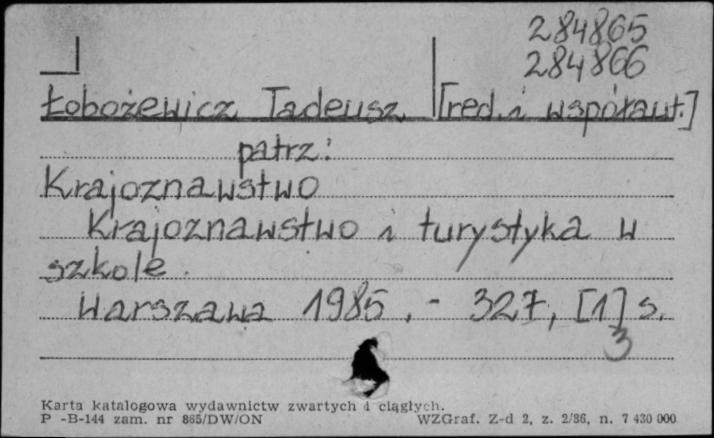 284865
284866
Łobożewicz Tadeusz [red. i współaut.]
patrz:
Krajoznawstwo
Krajoznawstwo i turystyka w
szkole.
Warszawa 1985. - 327, [1] s.
3
Karta katalogowa wydawnictw zwartych i ciągłych.
P -B-144 zam. nr 865/DW/ON WZGraf. Z-d 2, z. 2/86, n. 7 430 000